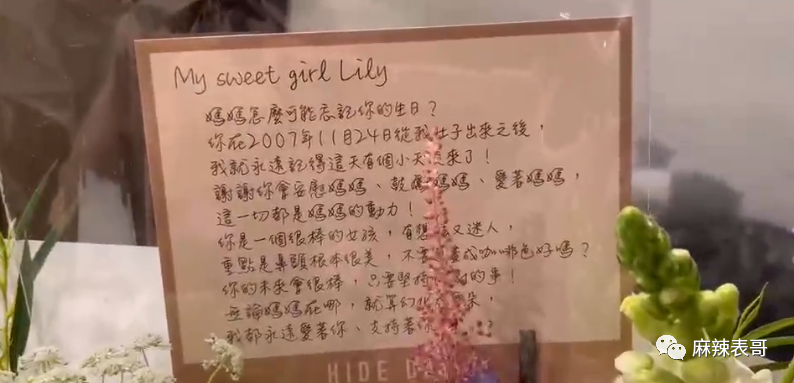 My sweet girl Lily
媽媽怎麼可能忘記你的生日?
你在2007年11月24日從我肚子出來之後,
我就永遠記得這天有個小天 來了!
謝謝你會安慰媽媽、鼓勵媽媽、愛著媽媽,
這一切都是媽媽的動力!
你是一個很棒的女孩,有想 又迷人,
重點是鼻頭根本很美,不要 畫成咖啡色好嗎?
你的未來會很棒,只要堅持 對的事!
無論媽媽在哪,就算幻化 朵,
我都永遠愛著你、支持著你
HIDE
麻辣表哥